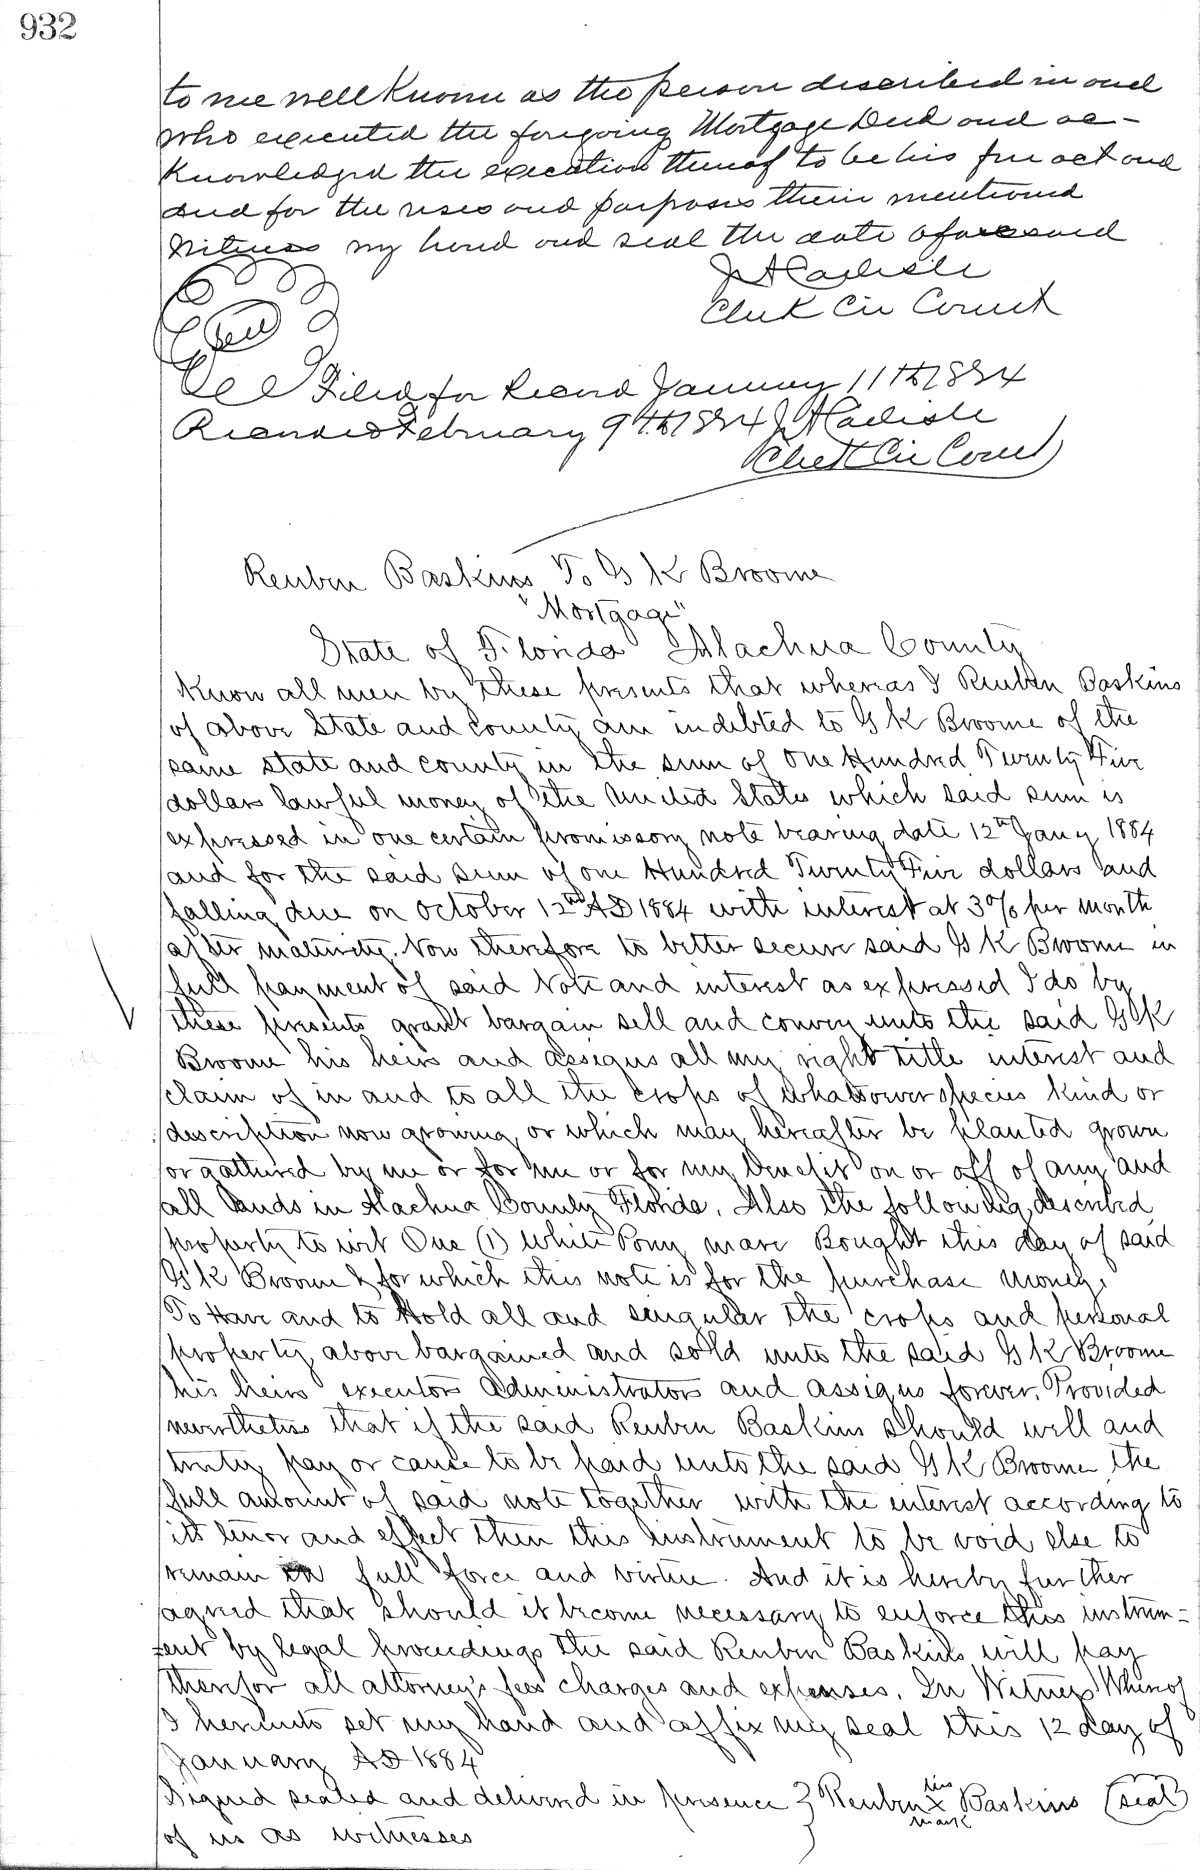 932
to me well known as the person described in and
who executed the foregoing Mortgage Deed and ac-
knowledged the execution thereof to be his free act and
deed for the uses and purposes therein mentioned
Witness my hand and seal the date aforesaid
J A Carlisle
Clerk Cir Court
Seal
Filed for Record January 11th 1884
Recorded February 9th 1884 J A Carlisle
Clerk Cir Court
Reuben Baskins To G K Broome
"Mortgage"
State of Florida Alachua County
Know all men by these presents that whereas I Reuben Baskins
of above State and county am indebted to G K Broome of the
same state and county in the sum of One Hundred Twenty Five
dollars lawful money of the United States which said sum is
expressed in one certain promissory note bearing date 12th Jany 1884
and for the said sum of one Hundred Twenty Five dollars and
falling due on October 12th AD 1884 with interest at 3% per month
after maturity. Now therefore to better secure said G K Broome in
full payment of said Note and interest as expressed I do by
these presents grant bargain sell and convey unto the said G K
Broome his heirs and assigns all my right title interest and
claim of in and to all the crops of whatsoever species kind or
description now growing or which may hereafter be planted grown
or gathered by me or for me or for my benefit on or off of any and
all lands in Alachua County Florida. Also the following described
property to wit One (1) White Pony mare Bought this day of said
G K Broome & for which this note is for the purchase money.
To Have and to Hold all and singular the crops and personal
property above bargained and sold unto the said G K Broome
his heirs executors administrators and assigns forever. Provided
nevertheless that if the said Reuben Baskins should well and
truly pay or cause to be paid unto the said G K Broome the
full amount of said note together with the interest according to
its tenor and effect then this instrument to be void else to
remain in full force and virtue. And it is hereby further
agreed that should it become necessary to enforce this instrum=
ent by legal proceedings the said Reuben Baskins will pay
therefor all attorney's fees charges and expenses. In Witness Whereof
I hereunto set my hand and affix my seal this 12 day of
January AD 1884
Signed sealed and delivered in presence } Reuben his x mark Baskins (seal)
of us as witnesses